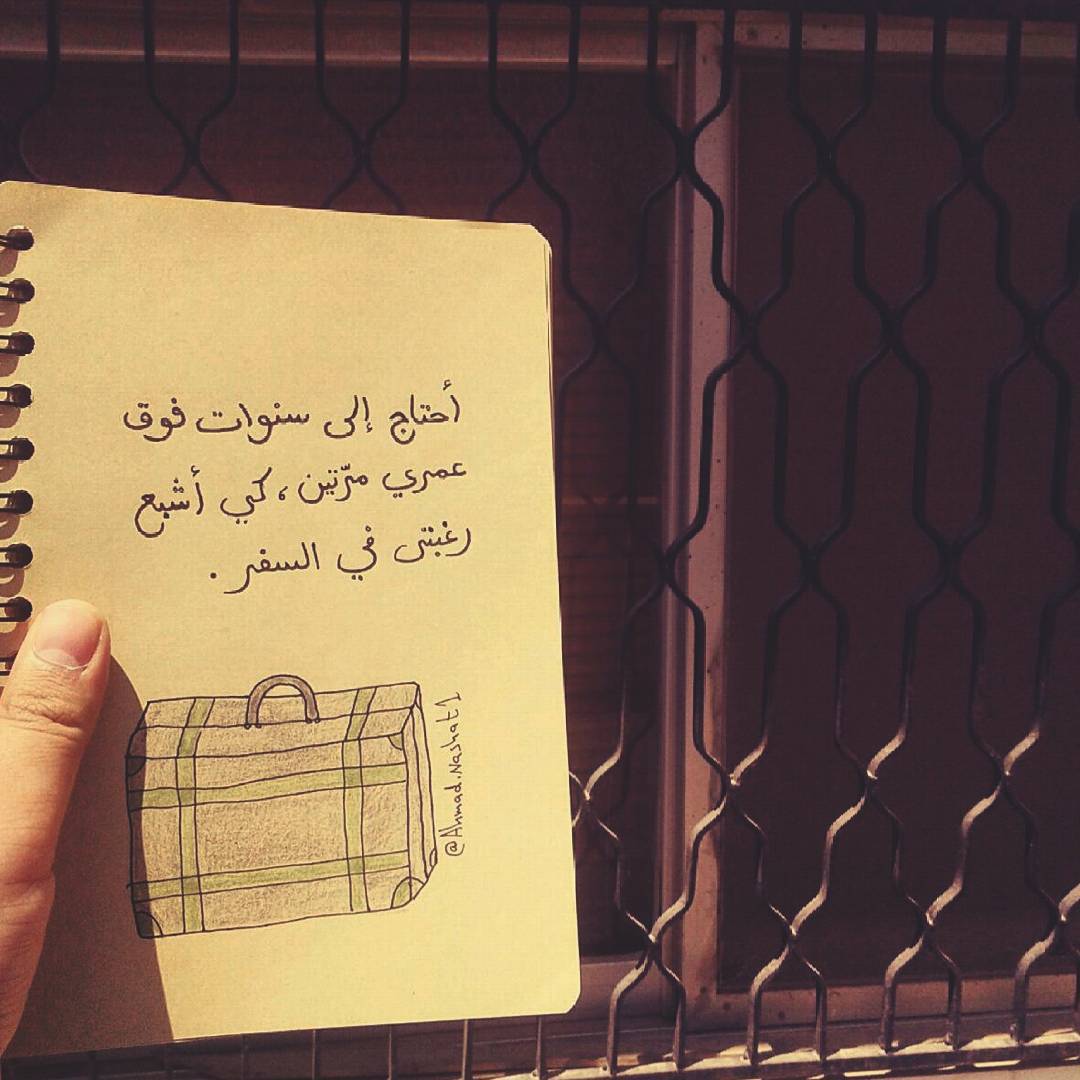 أحتاج إلى سنوات فوق
عمري مرّتين، كي أشبع
رغبتي في السفر.
@Ahmad.Nashat1